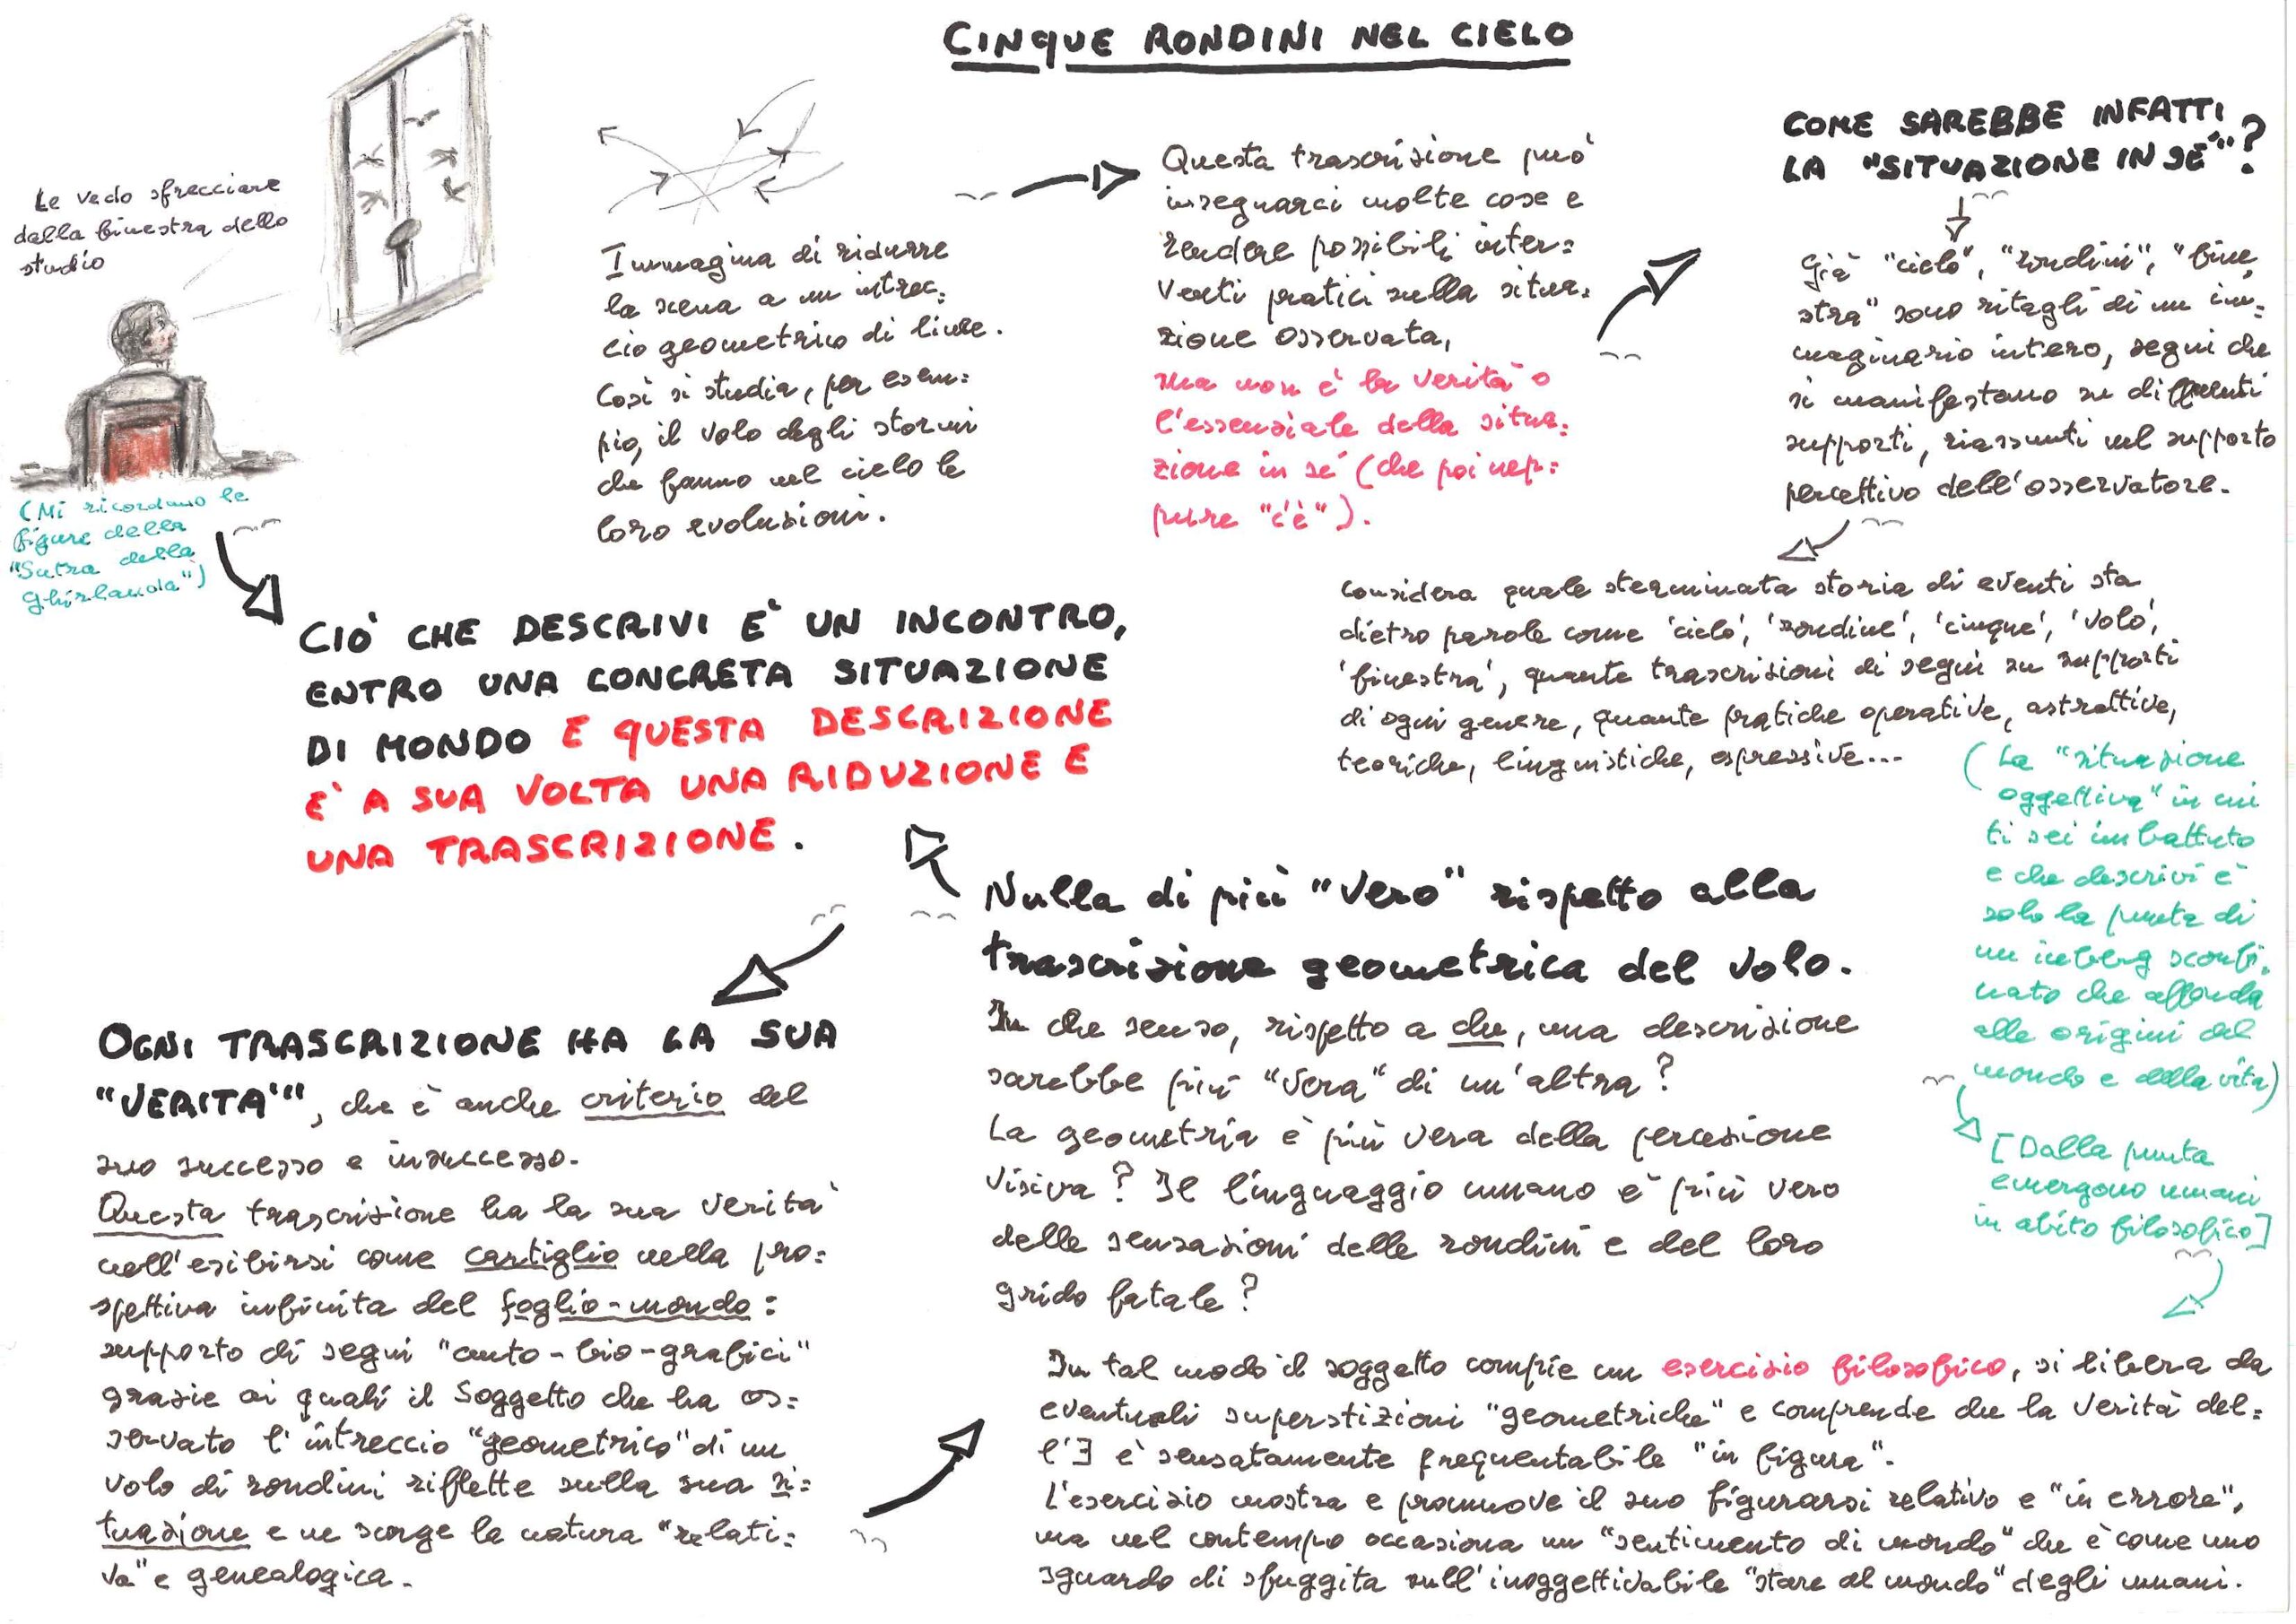 CINQUE RONDINI NEL CIELO
Le vedo sfrecciare
dalla finestra dello
studio
(Mi ricordano le
figure della
"Sutra della
Ghirlanda")
Immagina di ridurre
la scena a un intrec=
cio geometrico di linee.
Così si studia, per esem=
pio, il volo degli stormi
che fanno nel cielo le
loro evoluzioni.
Questa trascrizione può
insegnarci molte cose e
rendere possibili inter=
venti pratici sulla situa=
zione osservata,
ma non è la verità o
l'essenziale della situa=
zione in sé (che poi nep=
pure "c'è").
COME SAREBBE INFATTI
LA "SITUAZIONE IN SÉ"?
Già "cielo", "rondini", "fine
stra" sono ritagli di un im=
maginario intero, segni che
si manifestano su differenti
supporti, riassunti nel supporto
percettivo dell'osservatore.
Considera quale sterminata storia di eventi sta
dietro parole come 'cielo', 'rondine', 'cinque', 'volo',
'finestra', quante trascrizioni di segni su supporti
di ogni genere, quante pratiche operative, astrattive,
teoriche, linguistiche, espressive...
(La "situazione
oggettiva" in cui
ti sei imbattuto
e che descrivi è
solo la punta di
un iceberg sconfi=
nato che affonda
alle origini del
mondo e della vita)
[Dalla punta
emergono umani
in abito filosofico]
CIÒ CHE DESCRIVI È UN INCONTRO,
ENTRO UNA CONCRETA SITUAZIONE
DI MONDO E QUESTA DESCRIZIONE
È A SUA VOLTA UNA RIDUZIONE E
UNA TRASCRIZIONE.
Nulla di più "vero" rispetto alla
trascrizione geometrica del volo.
In che senso, rispetto a che, una descrizione
sarebbe più "vera" di un'altra?
La geometria è più vera della percezione
visiva? Il linguaggio umano è più vero
delle sensazioni delle rondini e del loro
grido fatale?
OGNI TRASCRIZIONE HA LA SUA
"VERITÀ", che è anche criterio del
suo successo e insuccesso.
Questa trascrizione ha la sua verità
nell'esibirsi come cartiglio nella pro=
spettiva infinita del foglio-mondo:
supporto di segni "auto-bio-grafici"
grazie ai quali il Soggetto che ha os=
servato l'intreccio "geometrico" di un
volo di rondini riflette sulla sua si=
tuazione e ne scorge la natura "relati=
va" e genealogica.
In tal modo il soggetto compie un esercizio filosofico, si libera da
eventuali superstizioni "geometriche" e comprende che la verità del=
l'∃ è sensatamente frequentabile "in figura".
L'esercizio mostra e promuove il suo figurarsi relativo e "in errore",
ma nel contempo occasiona un "sentimento di mondo" che è come uno
sguardo di sfuggita sull'inoggettivabile "stare al mondo" degli umani.